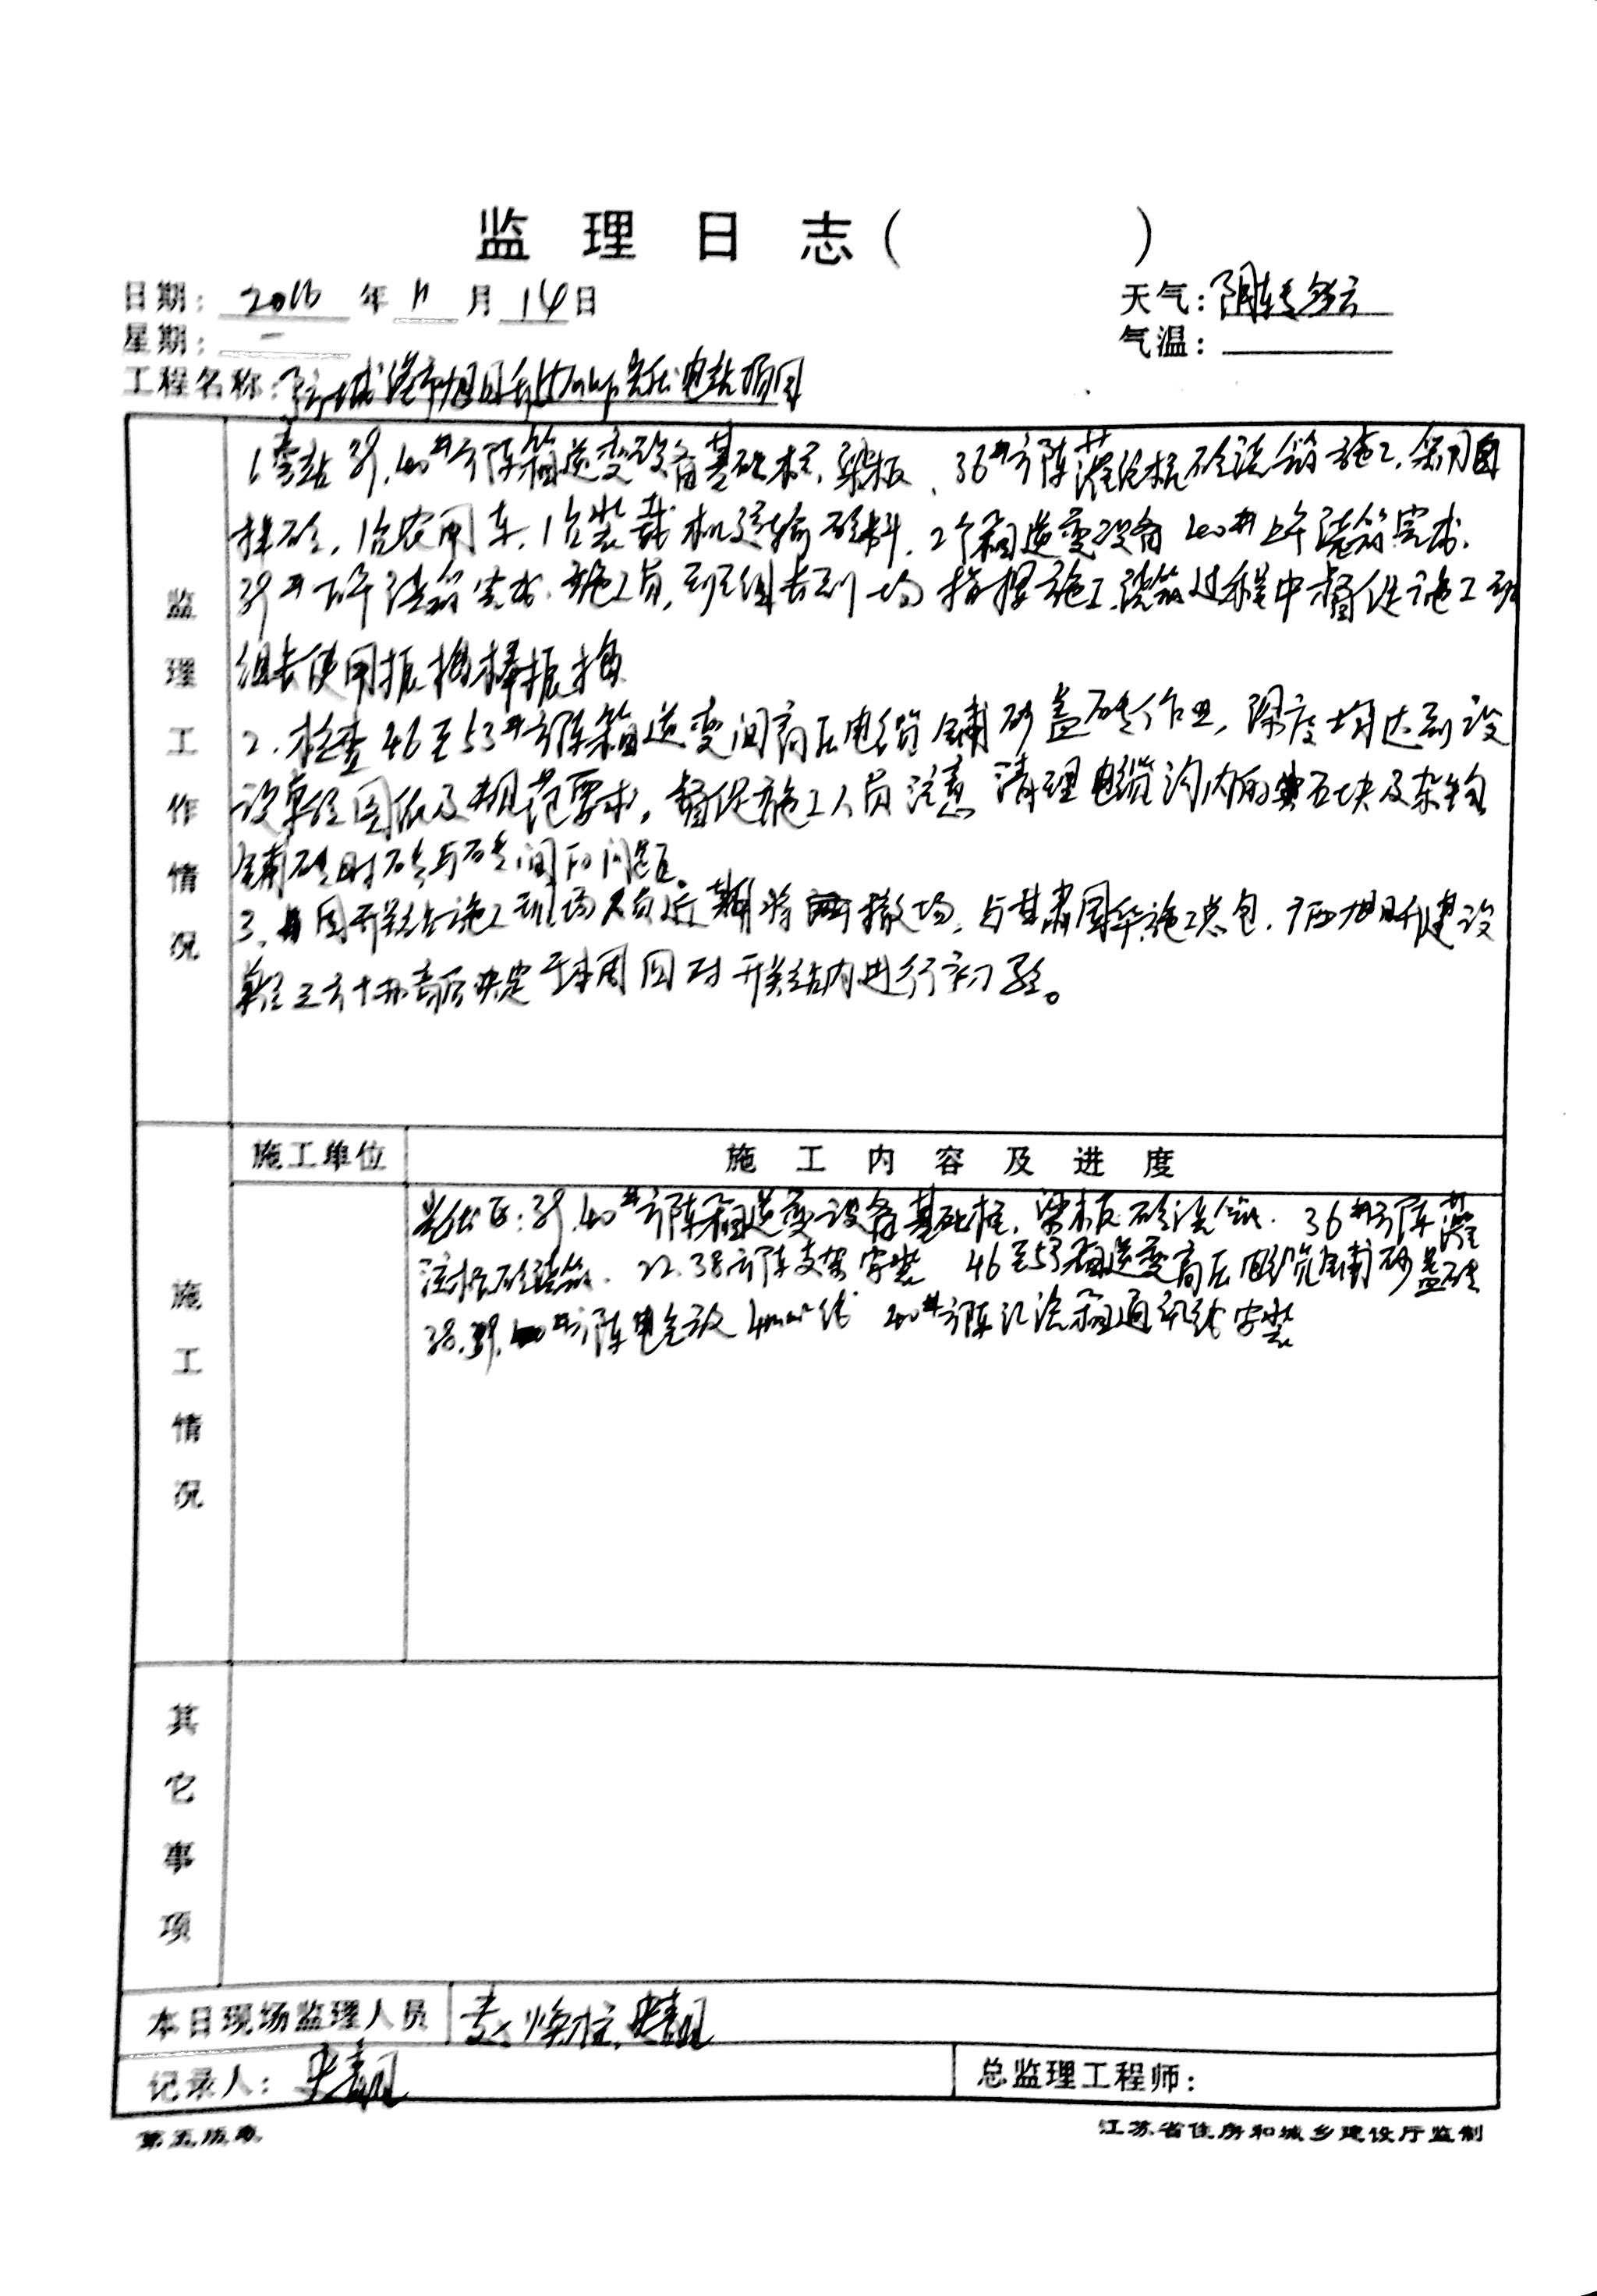 监 理 日 志 ( )
日期: 2016 年 11 月 14 日
天气: 阴转多云
星期: 一
气温:
工程名称: 防城港市旭日升 光伏电站项目
监理工作情况
1、旁站39、40#方阵箱逆变设备基础柱、梁板、36#方阵灌注桩砼浇筑施工,采用自
拌砼,1台农用车、1台装载机运输砼料,2个箱逆变设备40#上午浇筑完成,
39#下午浇筑完成,施工员,班组长到场指挥施工,浇筑过程中督促施工班
组长使用振捣棒振捣
2、检查46至53#方阵箱逆变间高压电缆铺砂盖砖作业,深度均达到设
设单位图纸及规范要求,督促施工人员注意清理电缆沟内的 石块及杂物
铺砖时砖与砖间的问题。
3、因开关站施工现场人员近期将 撤场,与甘肃国华施工总包,广西旭日升建设
单位三方协商后决定于本周四对开关站内进行初验。
施工情况
施工单位
施 工 内 容 及 进 度
光伏区:39、40#方阵箱逆变设备基础柱、梁板砼浇筑、36#方阵灌
注桩砼浇筑、22、38方阵支架安装 46至53箱逆变高压电缆铺砂盖砖
38、39、40#方阵电气敷4mm²线 40#方阵汇流箱通讯线安装
其它事项
本日现场监理人员
焕柱、
记录人:
总监理工程师:
第五版表
江苏省住房和城乡建设厅监制